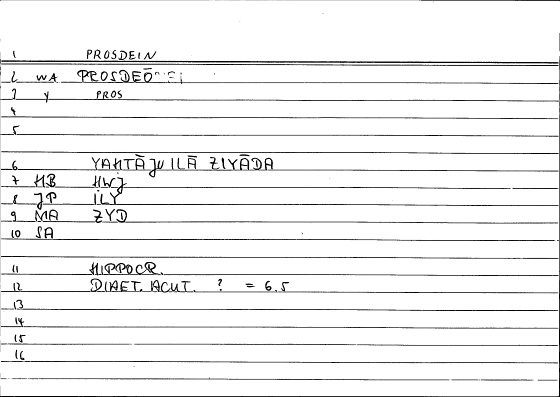 1 PROSDEIN
2 WA PROSDEŌ
3 Y PROS
4
5
6 YAḤTĀǦU ILĀ ZIYĀDA
7 HB HWJ
8 JP ILY
9 MA ZYD
10 SA
11 HIPPOCR.
12 DIAET. ACUT. ? = 6.5
13
14
15
16